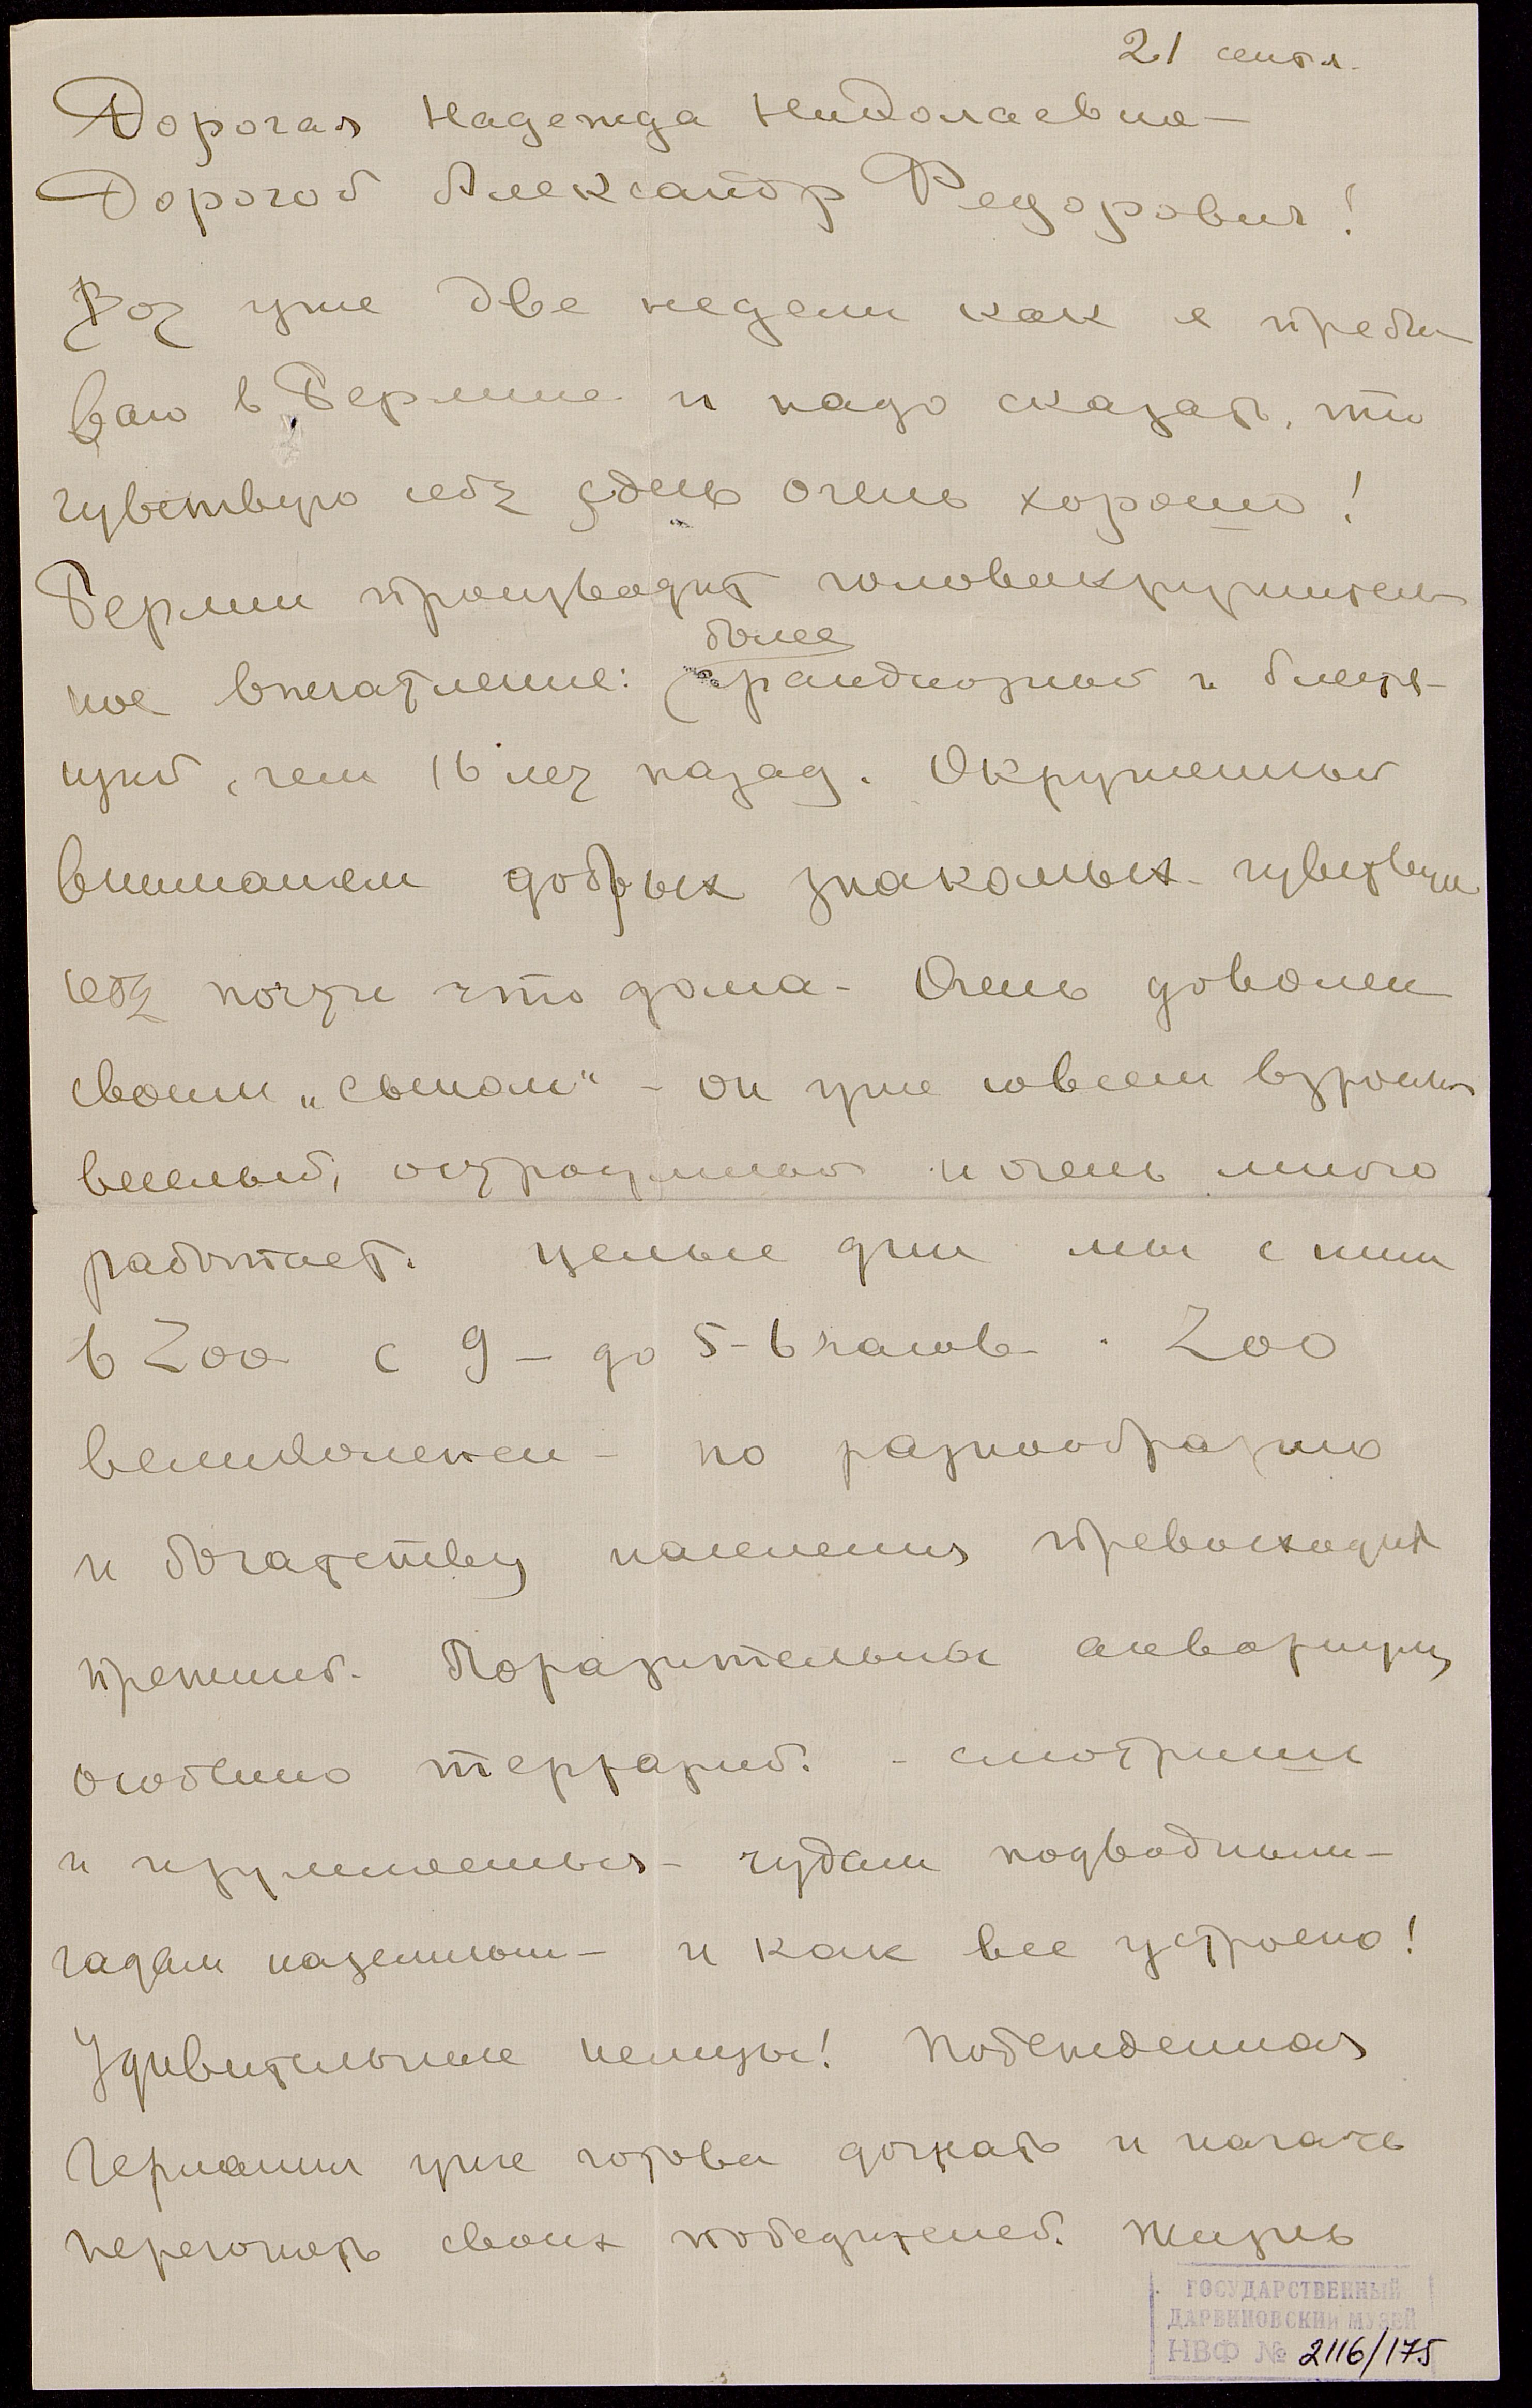 21 сентя.
Дорогая Надежда Николаевна –
Дорогой Александр Федорович!
Вот уже две недели как я пребы
ваю в Берлине и надо сказать, что
чувствую себя здесь очень хорошо!
Берлин производит головокружитель
более
ное впечатление: грандиозный и блестя–
щий, чем 16 лет назад. Окруженный
вниманием добрых знакомых – чувствую
себя почти что дома – Очень доволен
своим „сыном“ – он уже совсем взрослый
веселый, остроумный и очень много
работает. Целые дни мы с ним
в Zoo с 9 – до 5–6 часов. Zoo
великолепен – по разнообразию
и богатству населения превосходит
прежний. Поразительны аквариум,
особенно террарий. – смотришь
и изумляешься – чудам подводным –
гадам наземным – и как все устроено!
Удивительные немцы! Побежденная
Германия уже готова догнать и начать
перегонять своих победителей. Жизнь
ГОСУДАРСТВЕННЫЙ
ДАРВИНОВСКИЙ МУЗЕЙ
НВФ № 2116/175